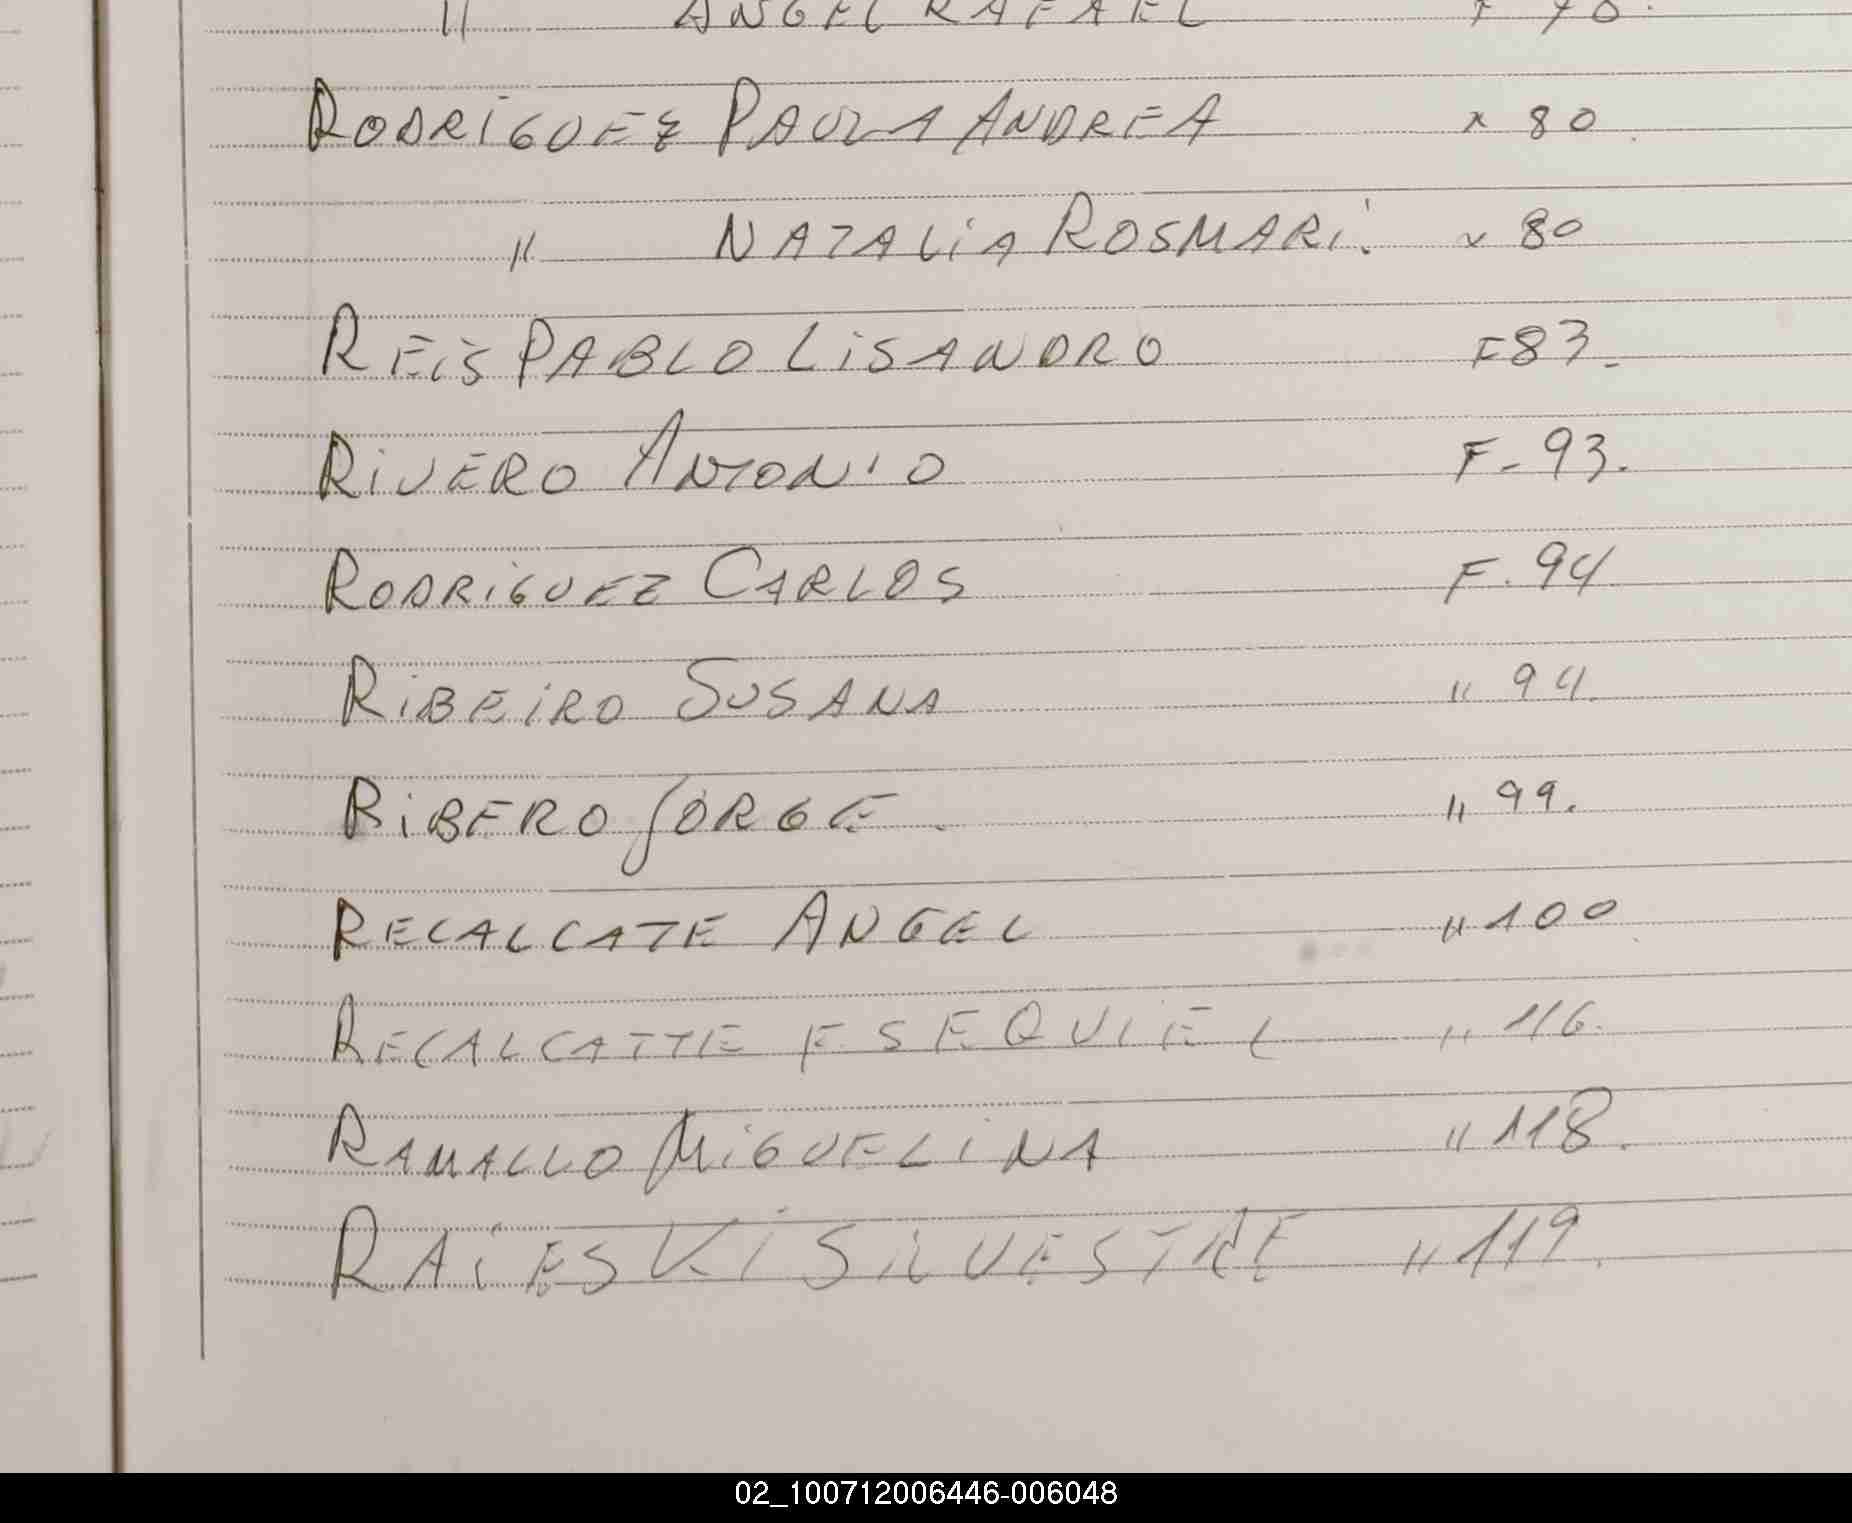 " ANGEL RAFAEL F 70.
RODRIGUEZ PAULA ANDREA x 80
" NATALIA ROSMARI. x 80
REIS PABLO LISANDRO F 83.
RIVERO ANTONIO F. 93.
RODRIGUEZ CARLOS F. 94
RIBEIRO SUSANA " 94.
RIBERO JORGE. " 99.
RECALCATE ANGEL " 100
RECALCATTE ESEQUIEL " 116.
RAMALLO MIGUELINA " 118.
RAIESKI SILVESTRE " 119.
02_100712006446-006048